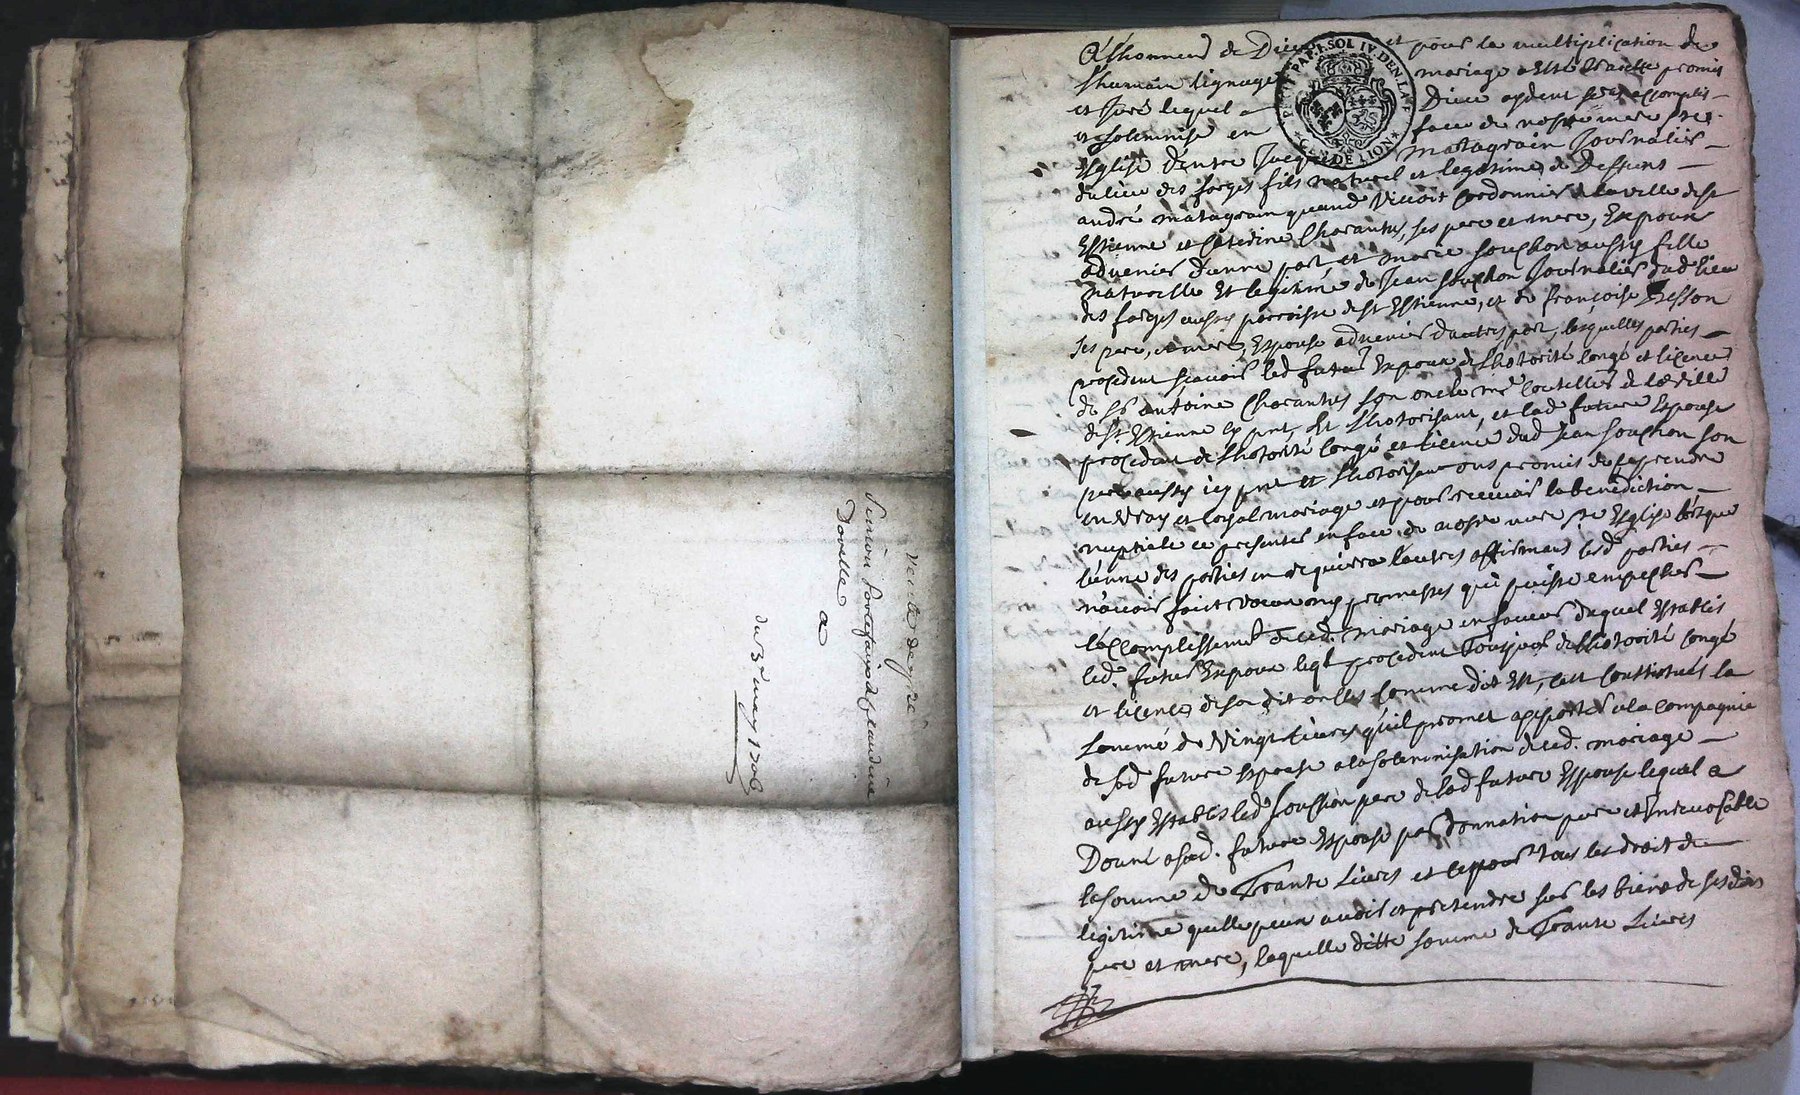 Vente de pré
Perricou portefaix de Chaudieu
a
Dovelle
du 3e may 1706
PETIT PAPI. SOL IV DEN. LA F
GEN. DE LION
A l'honneur de Dieu et pour la multiplication de
l'humain lignage mariage a esté traitté promis
et juré lequel a Dieu aydent sera accomplis
et solemnise en face de nostre mere ste
Esglise d'entre Jacq matagrain Journalier
du lieu des forges fils naturel et legitime de deffunt
andré matagrain quand vivoit Cordonnier de la ville de st
Estienne et Caterine Charantus, ses pere et mere, Expoux
advenier d'une part et marie souchon aussy fille
naturelle Et legitime de Jean souchon Journalier dud lieu
des forges aussy parroisse de st Estienne, et de françoise Besson
ses pere, et mere Espouse advenier d'autre part, lesquelles parties
procedent scavoir led futur Expoux de lhotorité congé et licence
de sr antoine Charantus son oncle me coutellier de la ville
de st Estienne icy pnt, Et lhotorisant, et lad future Espouse
procedent de lhotorité congé et licence dud Jean souchon son
pere aussy icy pnt et lhotorisant ont promis de se prendre
en vray et loyal mariage et pour recevoir la benediction
nuptiale ce presenter en face de nostre mere ste Esglise lorsque
l'eune des parties en requierra l'autres affirmant lesd parties
n'avoir faict vœux ny promesses qui puisse empecher
l'accomplissemt dud. mariage en faveur duquel Establis
led. futur Expoux leql procedent tousjour de lhotorité congé
et licence de son dit oncle comme dit Est, cest constitués la
somme de vingt livres qu'il promet apporter a la compagnie
de sad future espouse a la solemnisation dud. mariage
aussy Establis led souchon pere de lad future Espouse lequel a
Donné a sad. future Espouse par donnation pure et Irrevocable
la somme de trante livres et ce pour tous les droit de
legitime quelle peux avoir et pretendre sur les biens de sesdits
pere et mere, laquelle ditte somme de trante livres